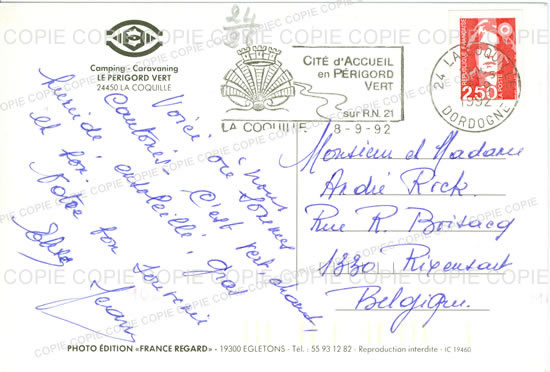 24
96
Camping - Caravaning
LE PERIGORD VERT
24450 LA COQUILLE
CITÉ d'ACCUEIL
en PÉRIGORD
VERT
sur R.N. 21
LA COQUILLE 8-9-92
24 LA COQUILLE
1992
DORDOGNE
RÉPUBLIQUE FRANÇAISE
2,50
Voici où nous sommes
cantonés. C'est vert,
humide, ensoleillé,
et bon
Notre bon souvenir
Monsieur et Madame
André Rick
Rue R. Boisacq
1330 Rixensart
Belgique.
PHOTO ÉDITION «FRANCE REGARD» - 19300 EGLETONS - Tel. : 55 93 12 82 - Reproduction interdite - IC 19460
COPIE COPIE COPIE COPIE COPIE COPIE